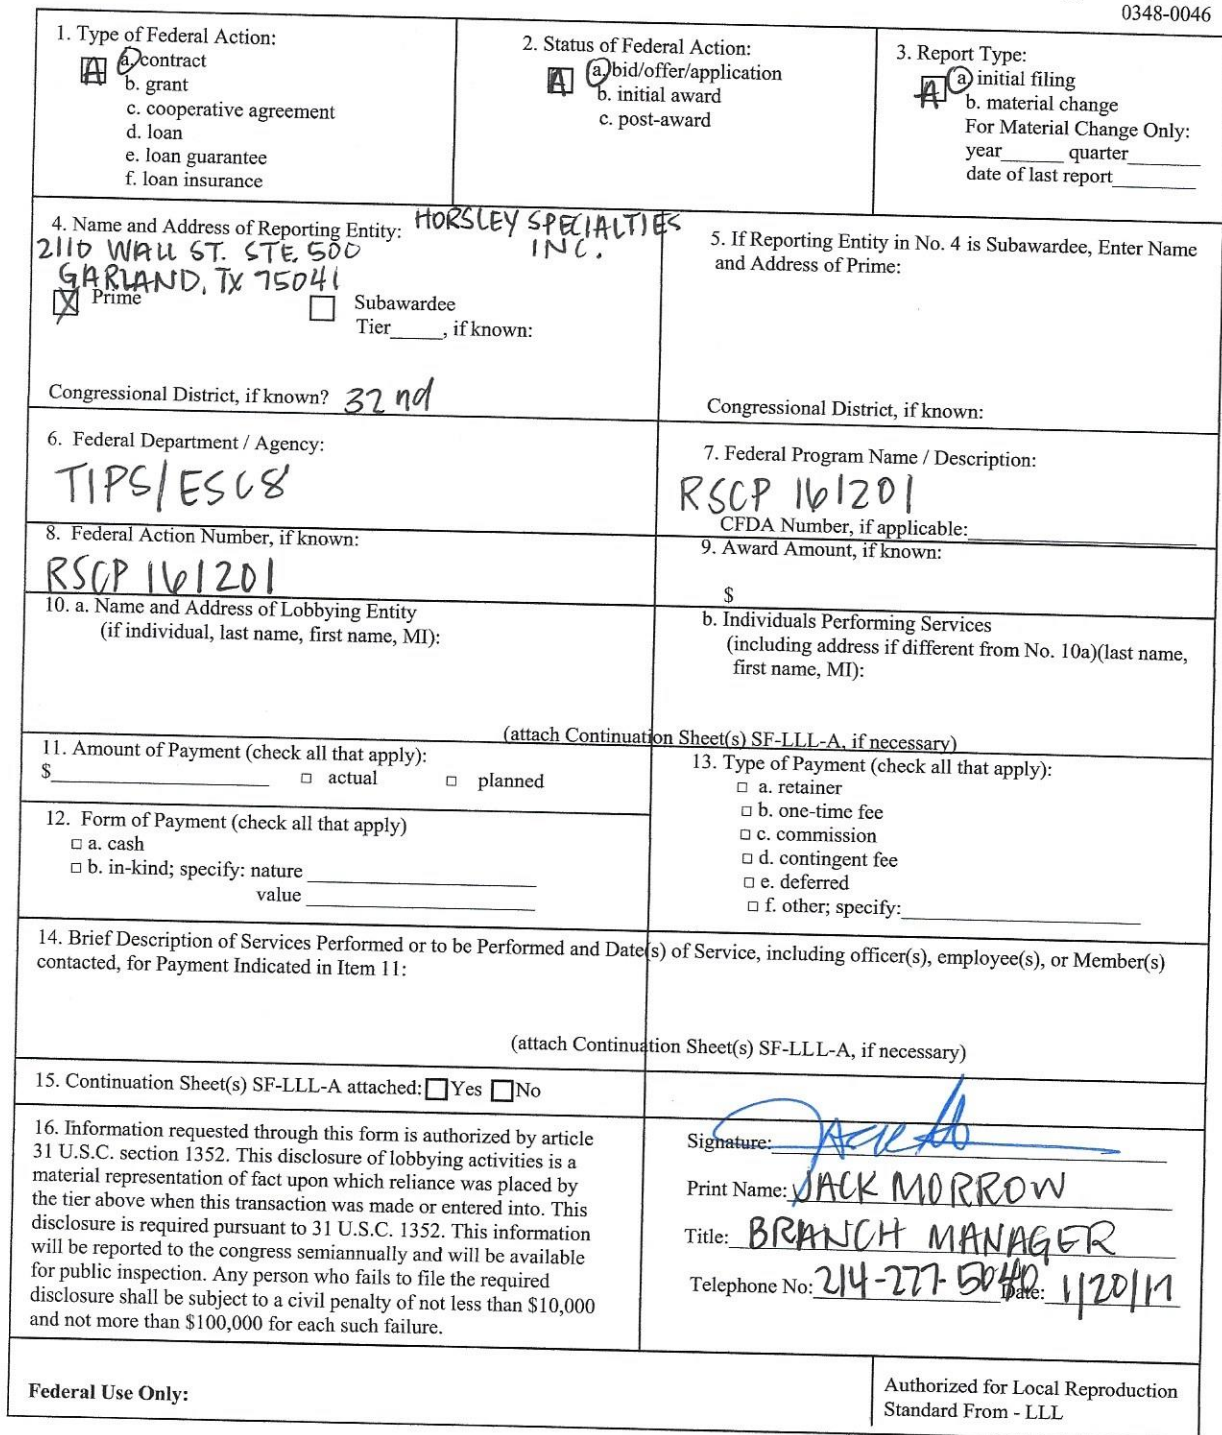 0348-0046
1. Type of Federal Action:
A a. contract
b. grant
c. cooperative agreement
d. loan
e. loan guarantee
f. loan insurance
2. Status of Federal Action:
A a. bid/offer/application
b. initial award
c. post-award
3. Report Type:
A a. initial filing
b. material change
For Material Change Only:
year______ quarter_______
date of last report________
4. Name and Address of Reporting Entity: HORSLEY SPECIALTIES
INC.
2110 WALL ST. STE. 500
GARLAND, TX 75041
X Prime
Subawardee
Tier_____, if known:
Congressional District, if known? 32nd
5. If Reporting Entity in No. 4 is Subawardee, Enter Name
and Address of Prime:
Congressional District, if known:
6. Federal Department / Agency:
TIPS/ESC8
7. Federal Program Name / Description:
RSCP 161201
CFDA Number, if applicable:
8. Federal Action Number, if known:
RSCP 161201
9. Award Amount, if known:
$
10. a. Name and Address of Lobbying Entity
(if individual, last name, first name, MI):
b. Individuals Performing Services
(including address if different from No. 10a)(last name,
first name, MI):
(attach Continuation Sheet(s) SF-LLL-A, if necessary)
11. Amount of Payment (check all that apply):
$ □ actual □ planned
12. Form of Payment (check all that apply)
□ a. cash
□ b. in-kind; specify: nature
value
13. Type of Payment (check all that apply):
□ a. retainer
□ b. one-time fee
□ c. commission
□ d. contingent fee
□ e. deferred
□ f. other; specify:
14. Brief Description of Services Performed or to be Performed and Date(s) of Service, including officer(s), employee(s), or Member(s)
contacted, for Payment Indicated in Item 11:
(attach Continuation Sheet(s) SF-LLL-A, if necessary)
15. Continuation Sheet(s) SF-LLL-A attached: □ Yes □ No
16. Information requested through this form is authorized by article
31 U.S.C. section 1352. This disclosure of lobbying activities is a
material representation of fact upon which reliance was placed by
the tier above when this transaction was made or entered into. This
disclosure is required pursuant to 31 U.S.C. 1352. This information
will be reported to the congress semiannually and will be available
for public inspection. Any person who fails to file the required
disclosure shall be subject to a civil penalty of not less than $10,000
and not more than $100,000 for each such failure.
Signature:
Print Name: JACK MORROW
Title: BRANCH MANAGER
Telephone No: 214-277-5040 Date: 1/20/17
Federal Use Only:
Authorized for Local Reproduction
Standard From - LLL